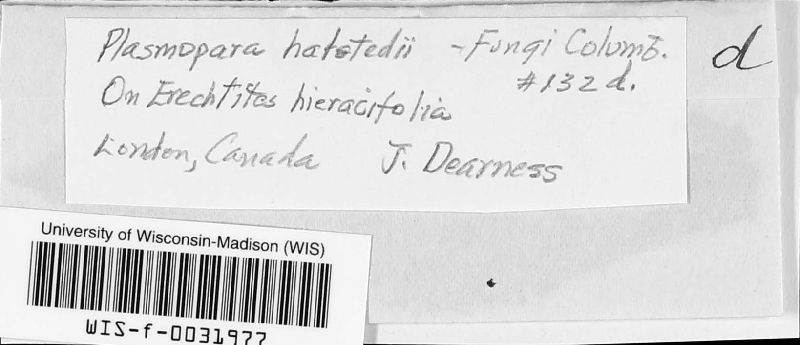 Plasmopara halstedii - Fungi Columb.
#132d.
d
On Erechtites hieracifolia
London, Canada J. Dearness
University of Wisconsin-Madison (WIS)
WIS-f-0031977